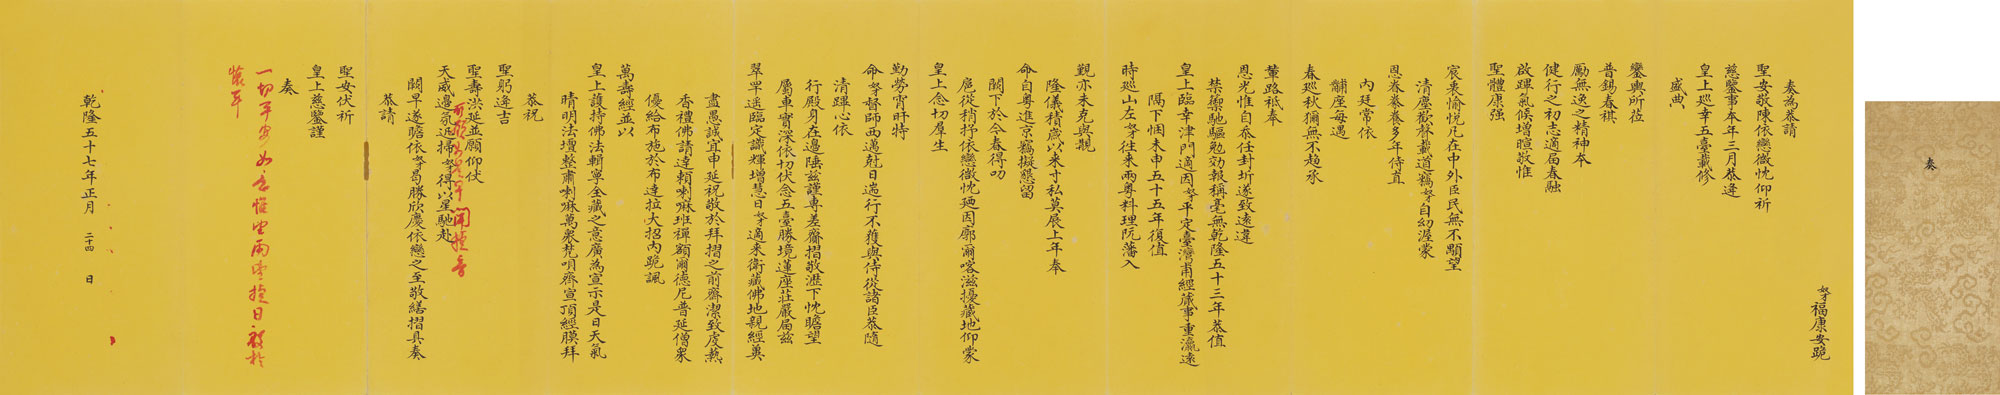 奏
奴才福康安跪
奏為恭請
聖安敬陳依戀微忱仰祈
慈鑒事本年三月恭逢
皇上巡幸五臺載修
盛典
鑾輿所蒞
普錫春祺
勵無逸之精神本
健行之初志適屆春融
啟蹕氣候增暄敬惟
聖體康強
宸衷愉悅凡在中外臣民無不顒望
清塵歡聲載道竊奴才自幼渥蒙
恩眷豢養多年侍直
內廷常依
黼座每遇
春巡秋獮無不趨承
輦路祗奉
恩光惟自忝任封圻遂致遠違
禁籞馳驅勉効報稱毫無乾隆五十三年恭值
皇上臨幸津門適因奴才平定臺灣甫經蕆事重瀛遠
隔下悃未申五十五年復值
時巡山左奴才往來兩粵料理阮藩入
覲亦未克與覩
隆儀積歲以來寸私莫展上年奉
命自粵進京竊擬懇留
闕下於今春得叨
扈從稍抒依戀微忱廼因廓爾喀滋擾藏地仰蒙
皇上念切羣生
勤勞宵旰特
命奴才督師西邁尅日遄行不獲與侍從諸臣恭隨
清蹕心依
行殿身在邊陲茲謹專差齎摺敬瀝下忱瞻望
屬車實深依切伏念五臺勝境蓮座莊嚴屆茲
翠罕遙臨定識輝增慧日奴才適來衛藏佛地親經奠
盡愚誠宜申延祝敬於拜摺之前齋潔致虔爇
香禮佛請達賴喇嘛班禪額爾德尼普延僧衆
優給布施於布達拉大招內跪諷
萬壽經並以
皇上護持佛法輯寧全藏之意廣為宣示是日天氣
晴明法壇整肅喇嘛萬衆梵唄齊宣頂經膜拜
恭祝
聖躬逢吉
聖壽洪延並願仰伏
天威邊氛迅掃奴才得以星馳赴
闕早遂瞻依奴才曷勝欣慶依戀之至敬繕摺具奏
恭請
聖安伏祈
皇上慈鑒謹
奏
一切平安如意惟望兩處捷日報於
乾隆五十七年正月二十四日